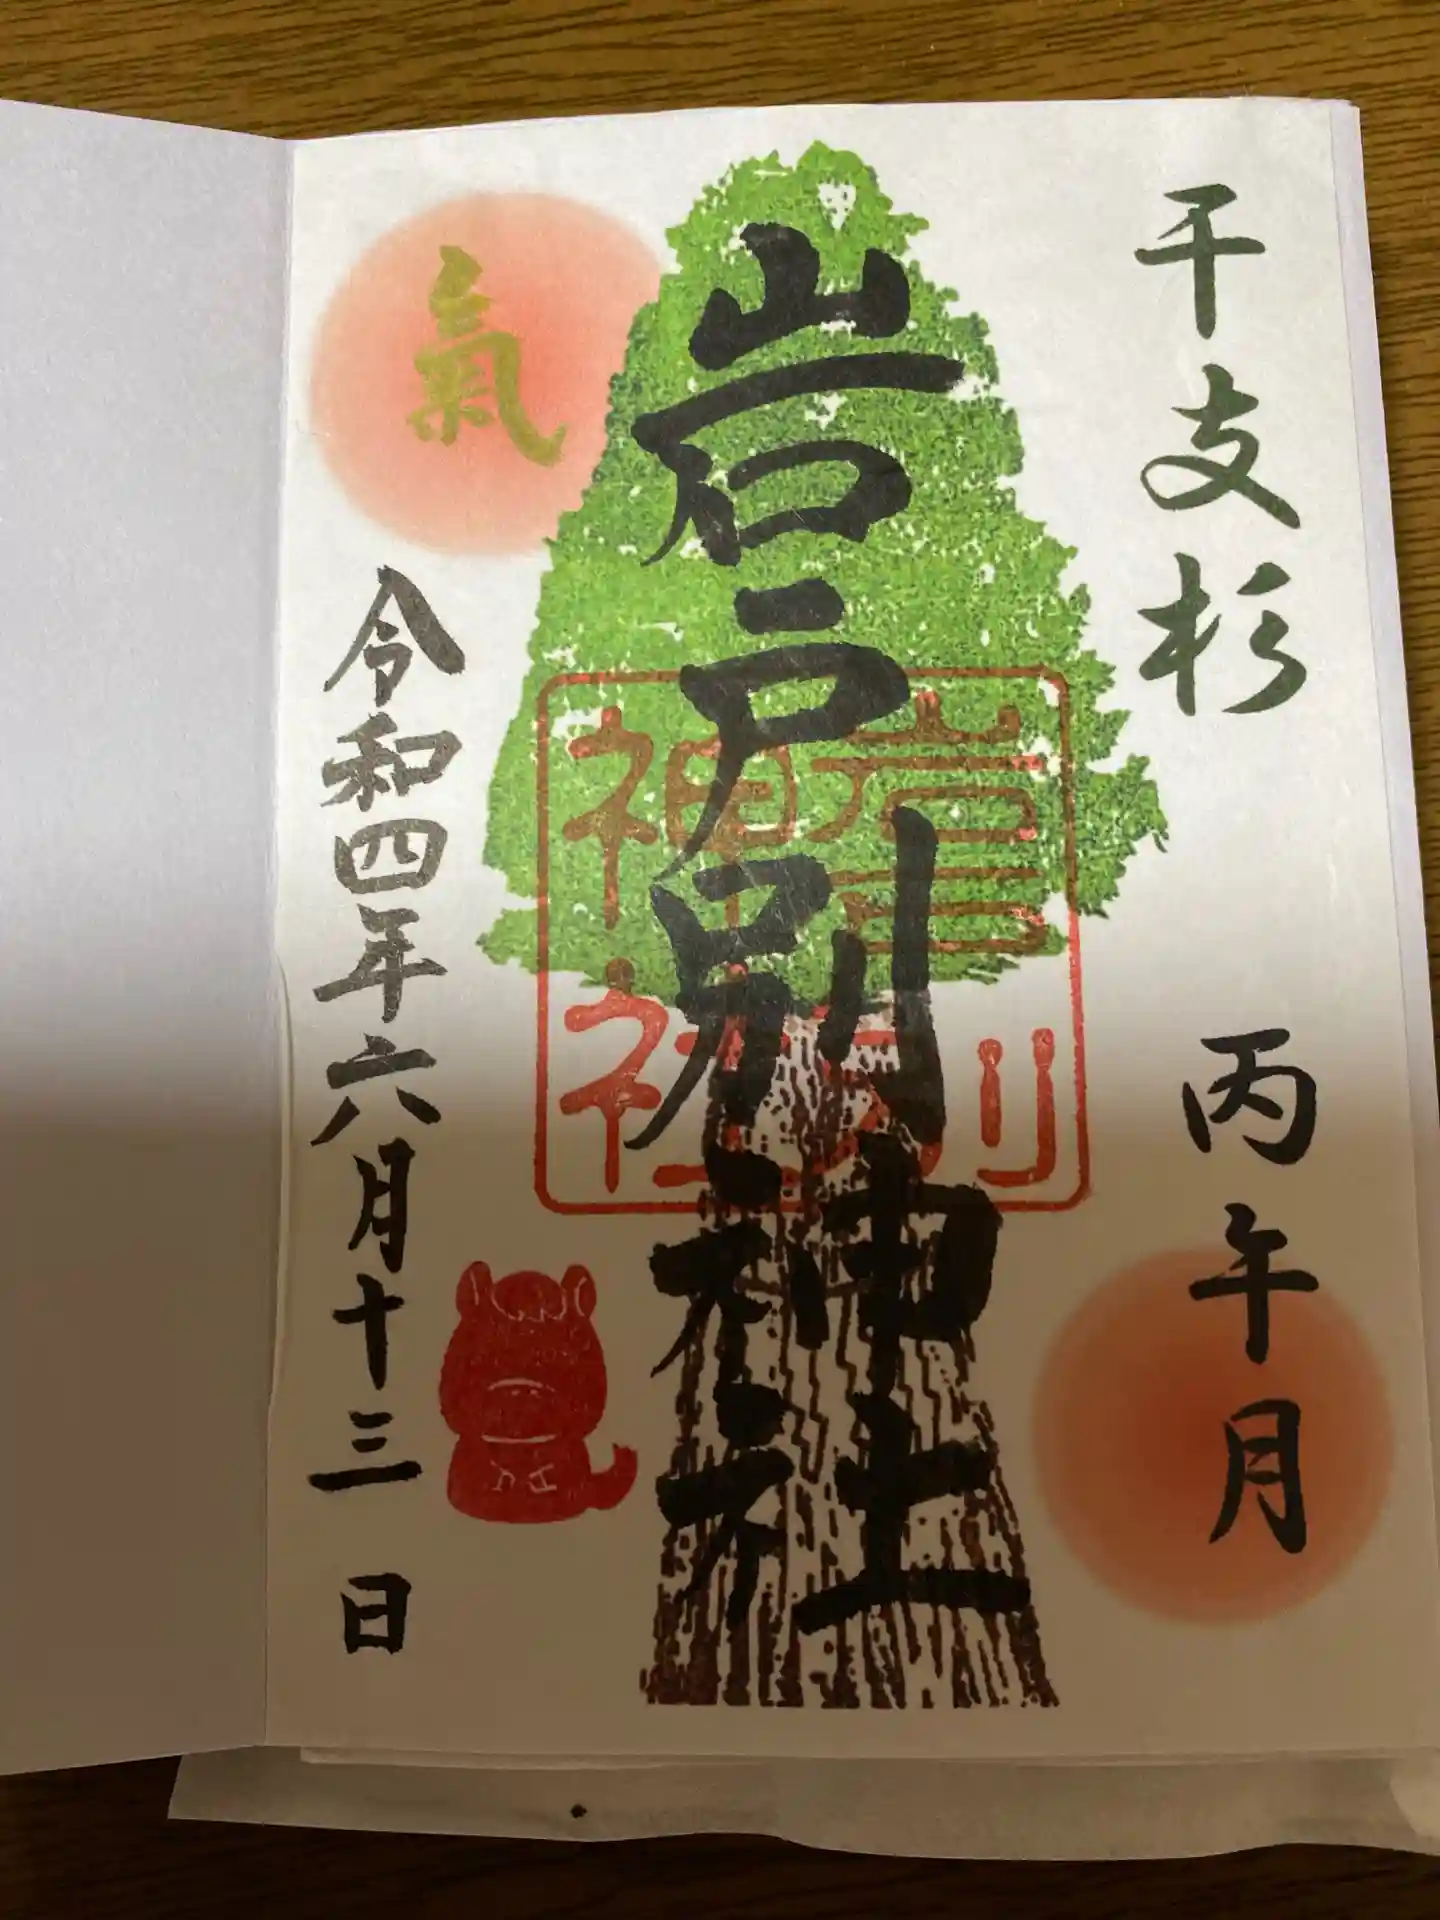 干支杉 丙午月
岩戸別神社
岩戸別
神社
氣
令和四年六月十三日